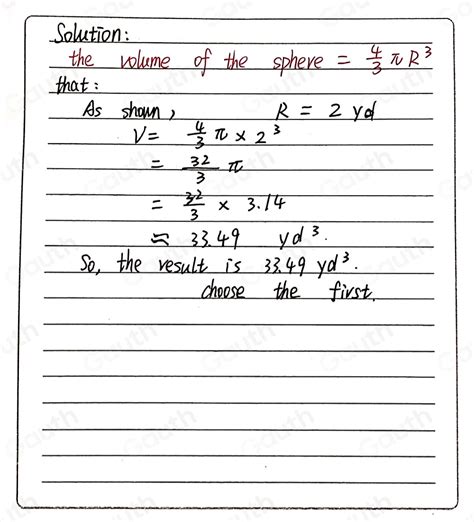 Solution:
the volume of the sphere = 4/3 π R³
that:
As shown, R = 2 yd
V = 4/3 π × 2³
= 32/3 π
= 32/3 × 3.14
≈ 33.49 yd³.
So, the result is 33.49 yd³.
choose the first.
Gauth